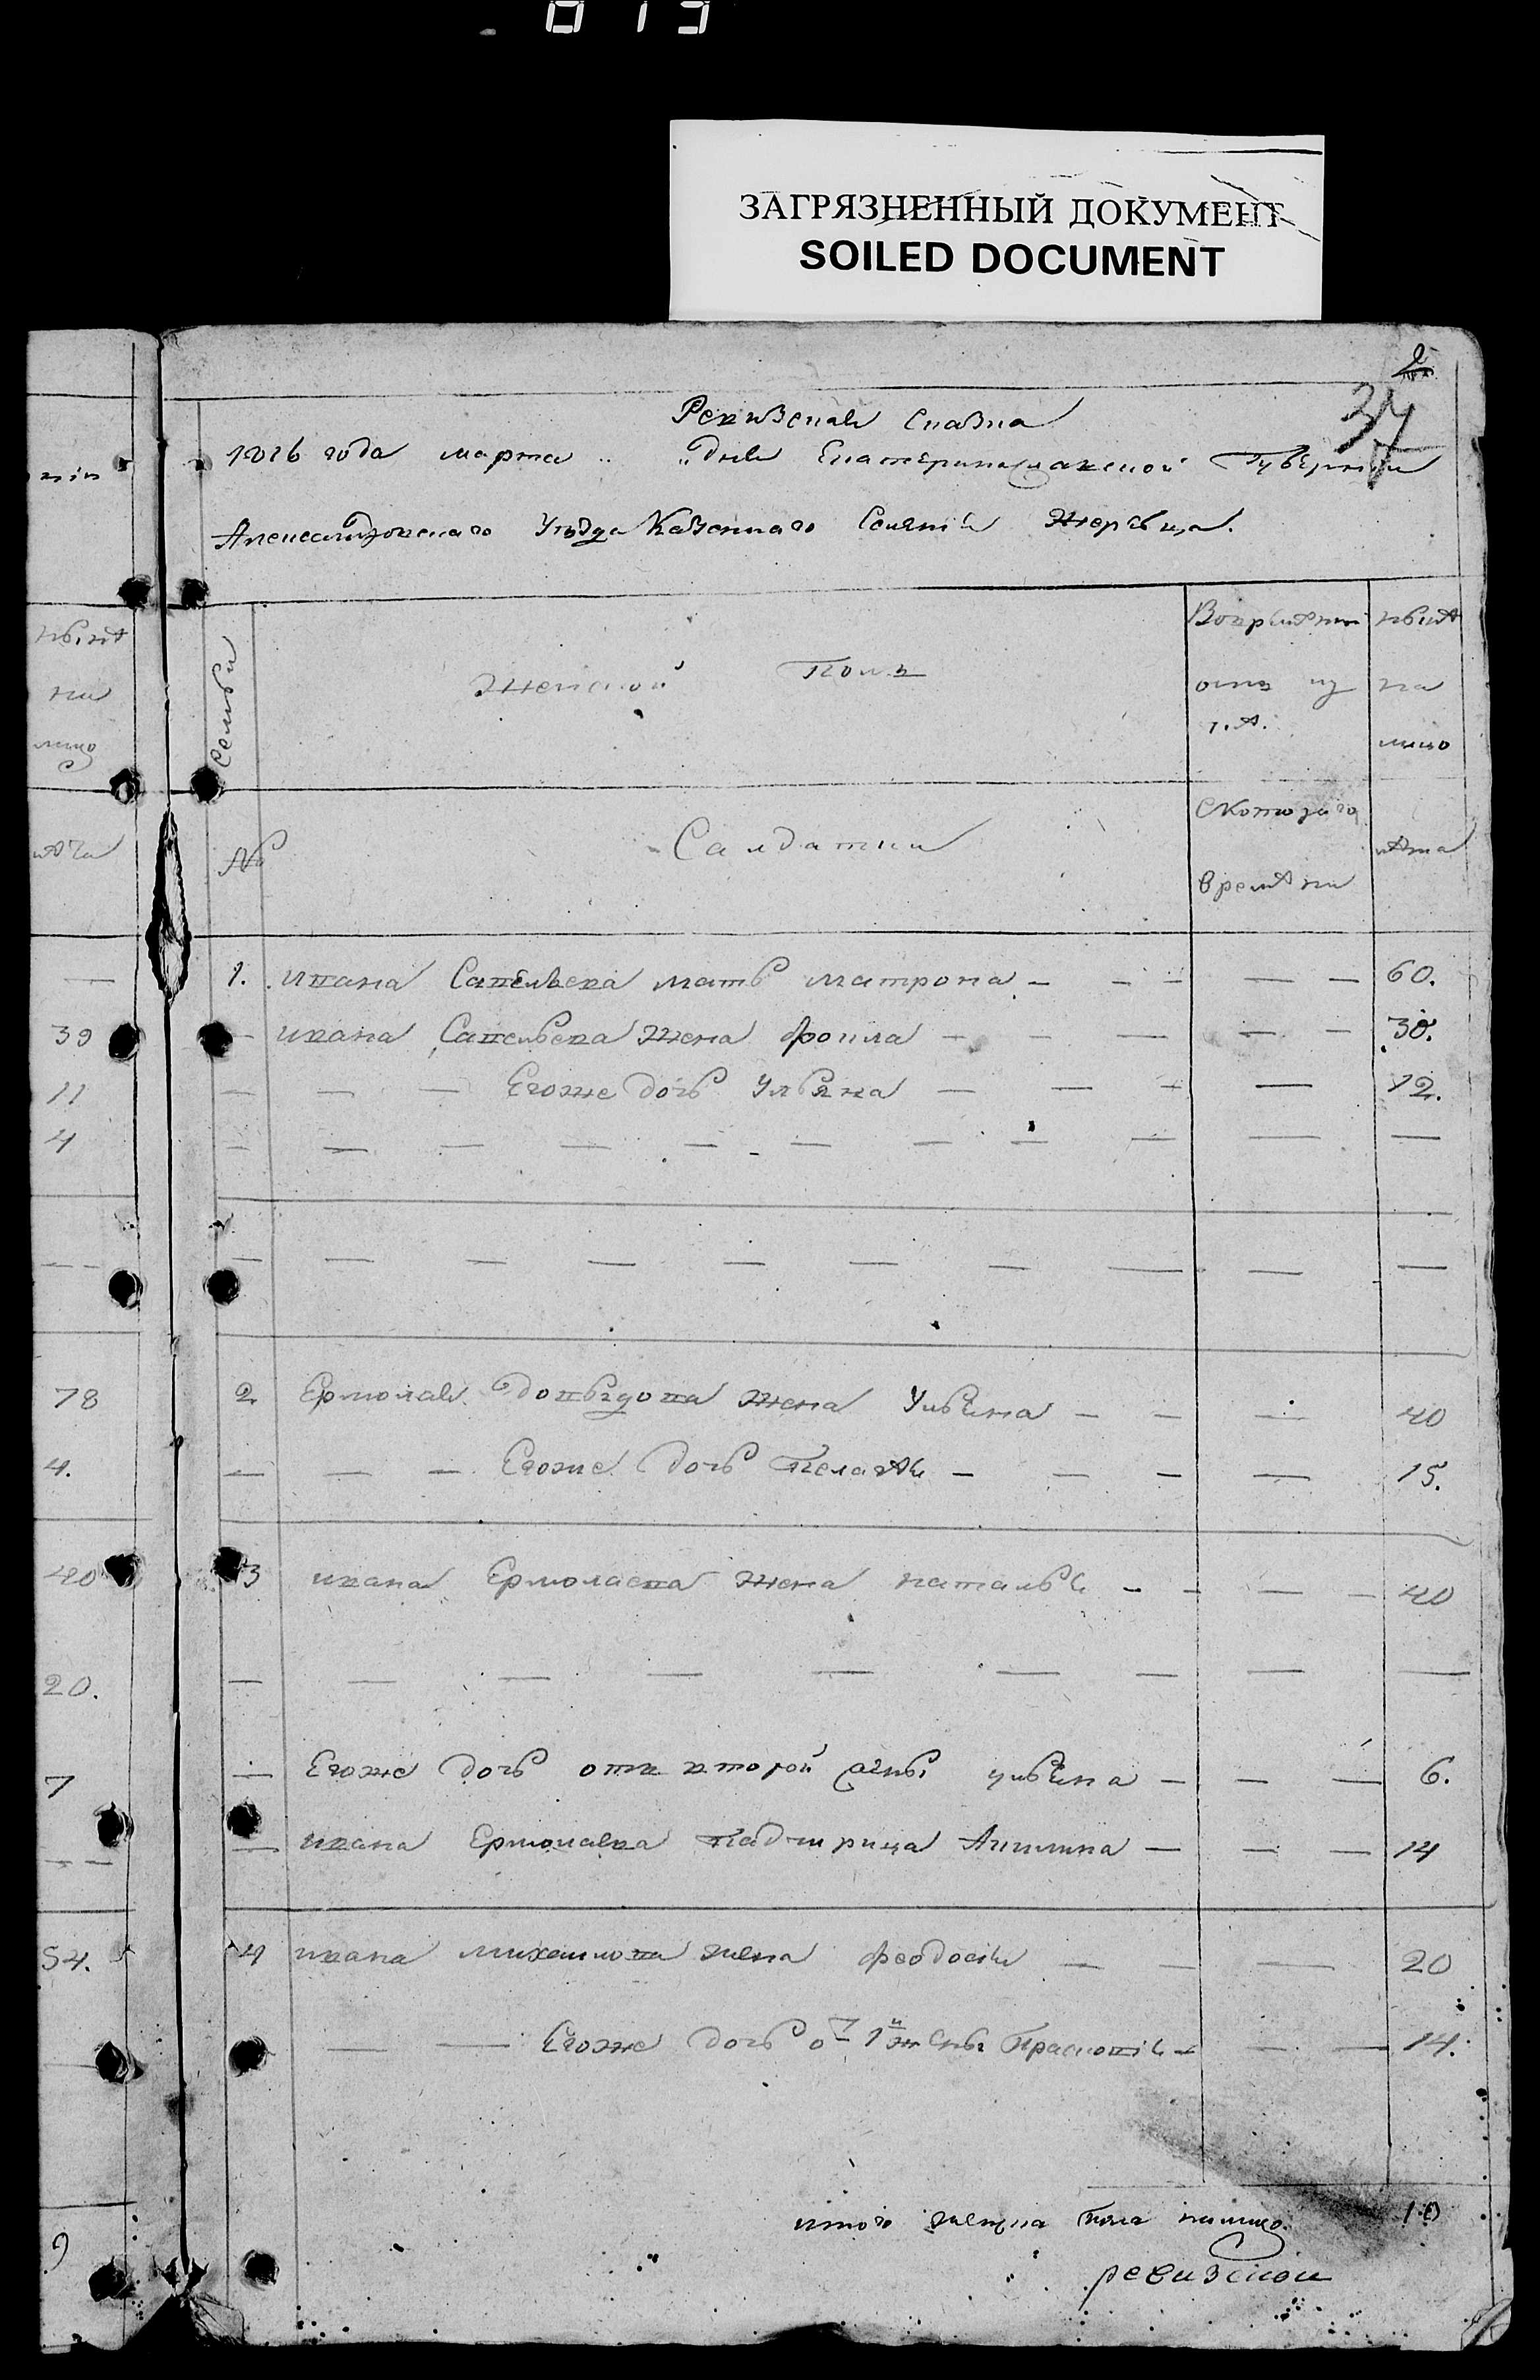 013
ЗАГРЯЗНЕННЫЙ ДОКУМЕНТ
SOILED DOCUMENT
2
37
Ревизская Сказка
1816 года марта .. „дня Екатеринославской Губернии
Александровского Уезда Казенного Селения Жеребца.
Семьи
Женской Пол
Во времянной
отлу
ныне
на
лицо
№
Салдатки
С Которого
времяни
лета
1. ивана Савельева мать матрона — 60.
ивана Савельева жена фрола — 38.
Егоже дочь Ульяна — 12.
2 Ермолая давыдова жена Ульяна — 40
Егоже дочь Пелагея — 15.
3 ивана Ермолаева жена наталья — 40
Егоже дочь отъ второй жены ульяна — 6.
ивана Ермолаева Падчирица Акилина — 14
4 ивана михаилова жена феодосия — 20
Егоже дочь от 1й жены Прасковія — 14.
итого женска пола налицо. 10
ревизской
39
11
4
78
4.
40
20.
7
54.
9